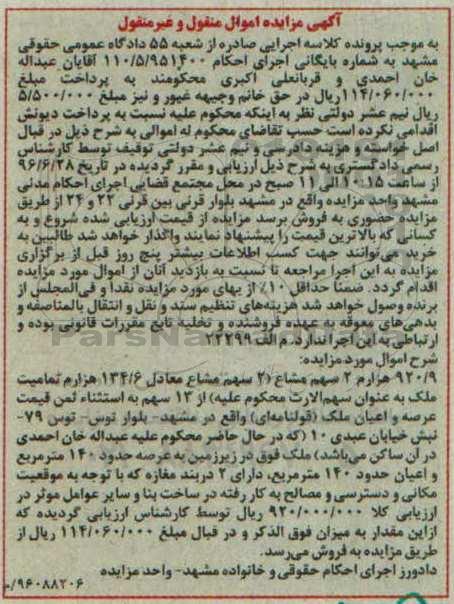 آگهی مزایده اموال منقول و غیرمنقول
به موجب پرونده کلاسه اجرایی صادره از شعبه ۵۵ دادگاه عمومی حقوقی
مشهد به شماره بایگانی اجرای احکام ۱۱۰/۵/۹۵۱۴۰۰ آقایان عبداله
خان احمدی و قربانعلی اکبری محکومند به پرداخت مبلغ
۱۱۴/۰۶۰/۰۰۰ریال در حق خانم وجیهه غیور و نیز مبلغ ۵/۵۰۰/۰۰۰
ریال نیم عشر دولتی نظر به اینکه محکوم علیه نسبت به پرداخت دیونش
اقدامی نکرده است حسب تقاضای محکوم له اموالی به شرح ذیل در قبال
اصل خواسته و هزینه دادرسی و نیم عشر دولتی توقیف توسط کارشناس
رسمی دادگستری به شرح ذیل ارزیابی و مقرر گردیده در تاریخ ۹۶/۶/۲۸
از ساعت ۱۰.۱۵ الی ۱۱ صبح در محل مجتمع قضایی اجرای احکام مدنی
مشهد واحد مزایده واقع در مشهد بلوار قرنی بین قرنی ۲۲ و ۲۴ از طریق
مزایده حضوری به فروش برسد مزایده از قیمت ارزیابی شده شروع و به
کسانی که بالاترین قیمت را پیشنهاد نمایند واگذار خواهد شد طالبین به
خرید می‌توانند جهت کسب اطلاعات بیشتر پنج روز قبل از برگزاری
مزایده به این اجرا مراجعه تا نسبت به بازدید آنان از اموال مورد مزایده
اقدام گردد. ضمنا حداقل ۱۰٪ از بهای مورد مزایده نقدا و فی‌المجلس از
برنده وصول خواهد شد هزینه‌های تنظیم سند و نقل و انتقال بالمناصفه و
بدهی‌های معوقه به عهده فروشنده و تخلیه تابع مقررات قانونی بوده و
ارتباطی به این اجرا ندارد. م الف ۲۲۲۹۹
شرح اموال مورد مزایده:
۹۲۰/۹ هزارم ۲ سهم مشاع (۲ سهم مشاع معادل ۱۳۴/۶ هزارم تمامیت
ملک به عنوان سهم‌الارث محکوم علیه) از ۱۳ سهم به استثناء ثمن قیمت
عرصه و اعیان ملک (قولنامه‌ای) واقع در مشهد- بلوار توس- توس ۷۹-
نبش خیابان عبدی ۱۰ (که در حال حاضر محکوم علیه عبداله خان احمدی
در آن ساکن می‌باشد) ملک فوق در زیرزمین به عرصه حدود ۱۴۰ مترمربع
و اعیان حدود ۱۴۰ مترمربع، دارای ۲ دربند مغازه که با توجه به موقعیت
مکانی و دسترسی و مصالح به کار رفته در ساخت بنا و سایر عوامل موثر در
ارزیابی کلا ۹۲۰/۰۰۰/۰۰۰ ریال توسط کارشناس ارزیابی گردیده که
ازاین مقدار به میزان فوق الذکر و در قبال مبلغ ۱۱۴/۰۶۰/۰۰۰ ریال از
طریق مزایده به فروش می‌رسد.
دادورز اجرای احکام حقوقی و خانواده مشهد- واحد مزایده
۹۶۰۸۸۲۰۶/م